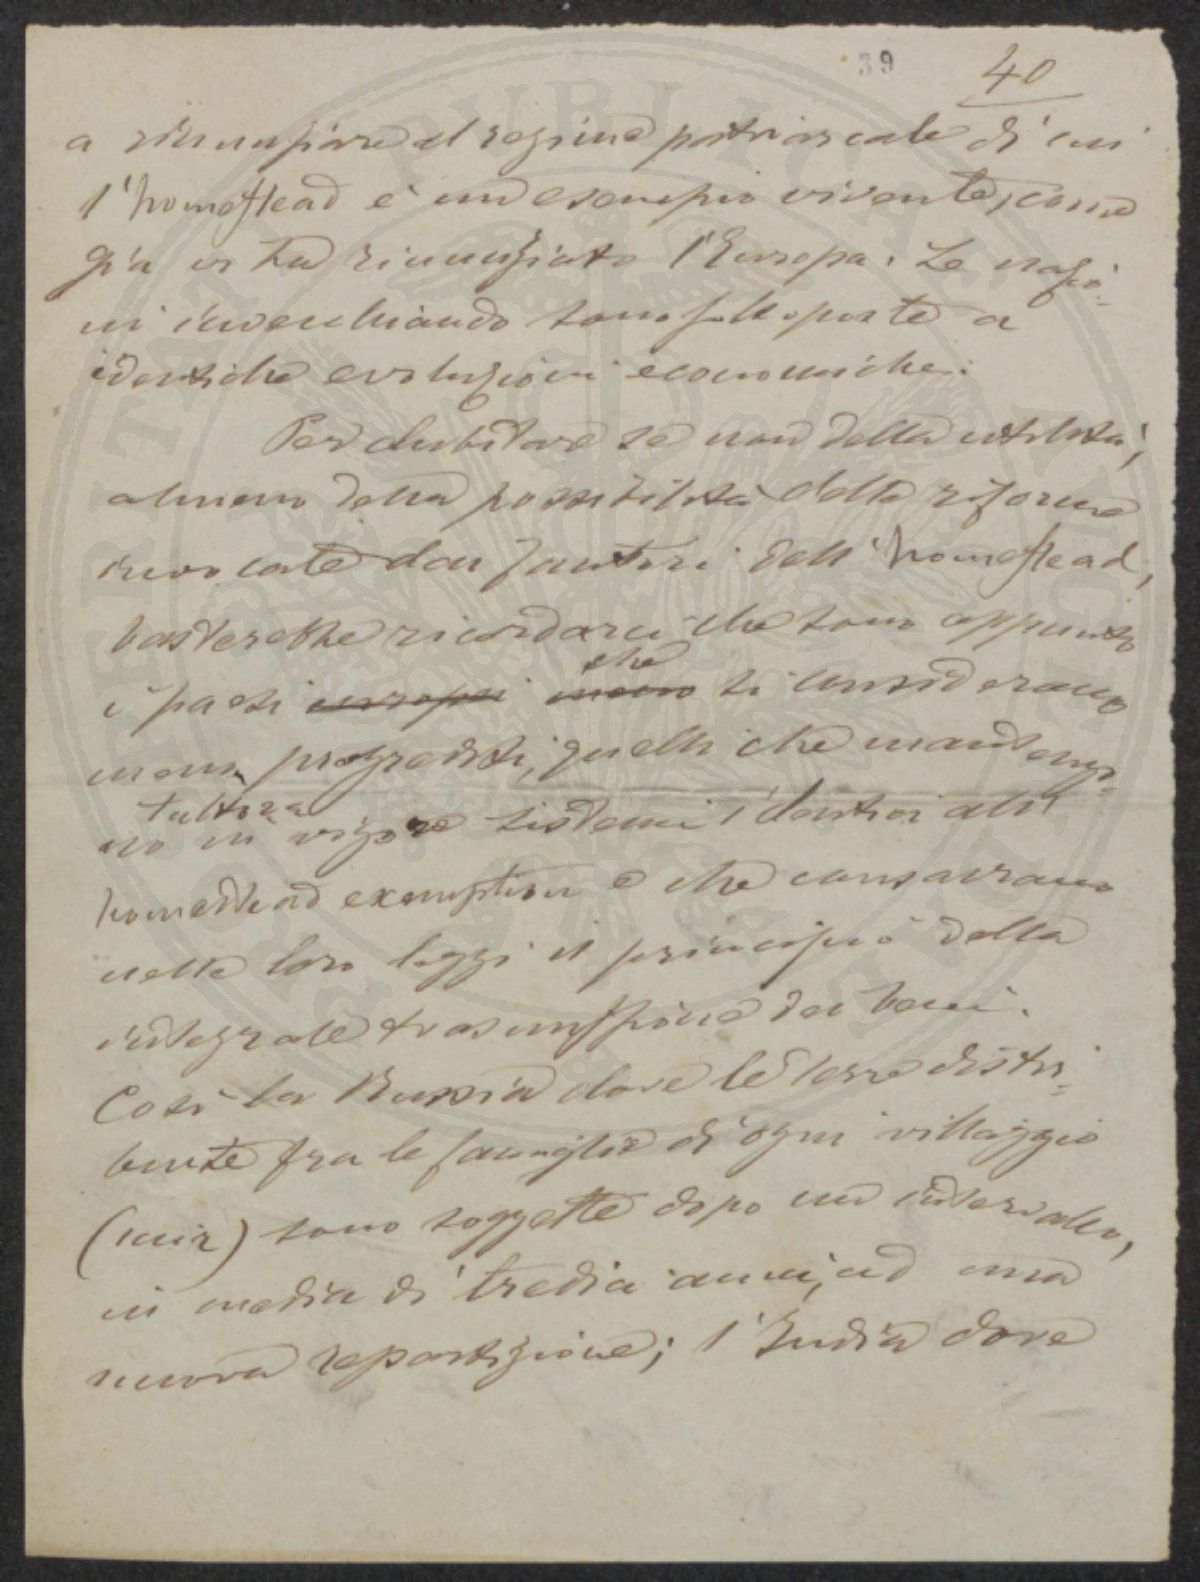 39 40
a rinunziare al regime patriarcale di cui
l'homestead è un esempio vivente, come
già vi ha rinunziato l'Europa. Le nazio=
ni invecchiando sono sottoposte a
identiche evoluzioni economiche.
Per dubitare se non della utilità,
almeno della possibilità delle riforme
invocate dai fautori dell'homestead,
basterebbe ricordarci che sono appunto
che
i paesi europei meno si considerano
meno progrediti, quelli che manteng=
tuttora
no in vigore sistemi identici all'
homestead exemption e che consacrano
nelle loro leggi il principio della
integrale trasmissione dei beni.
Così la Russia dove le terre distri=
buite fra le famiglie di ogni villaggio
(mir) sono soggette dopo un intervallo,
in media di tredici anni, ad una
nuova repartizione; l'India dove